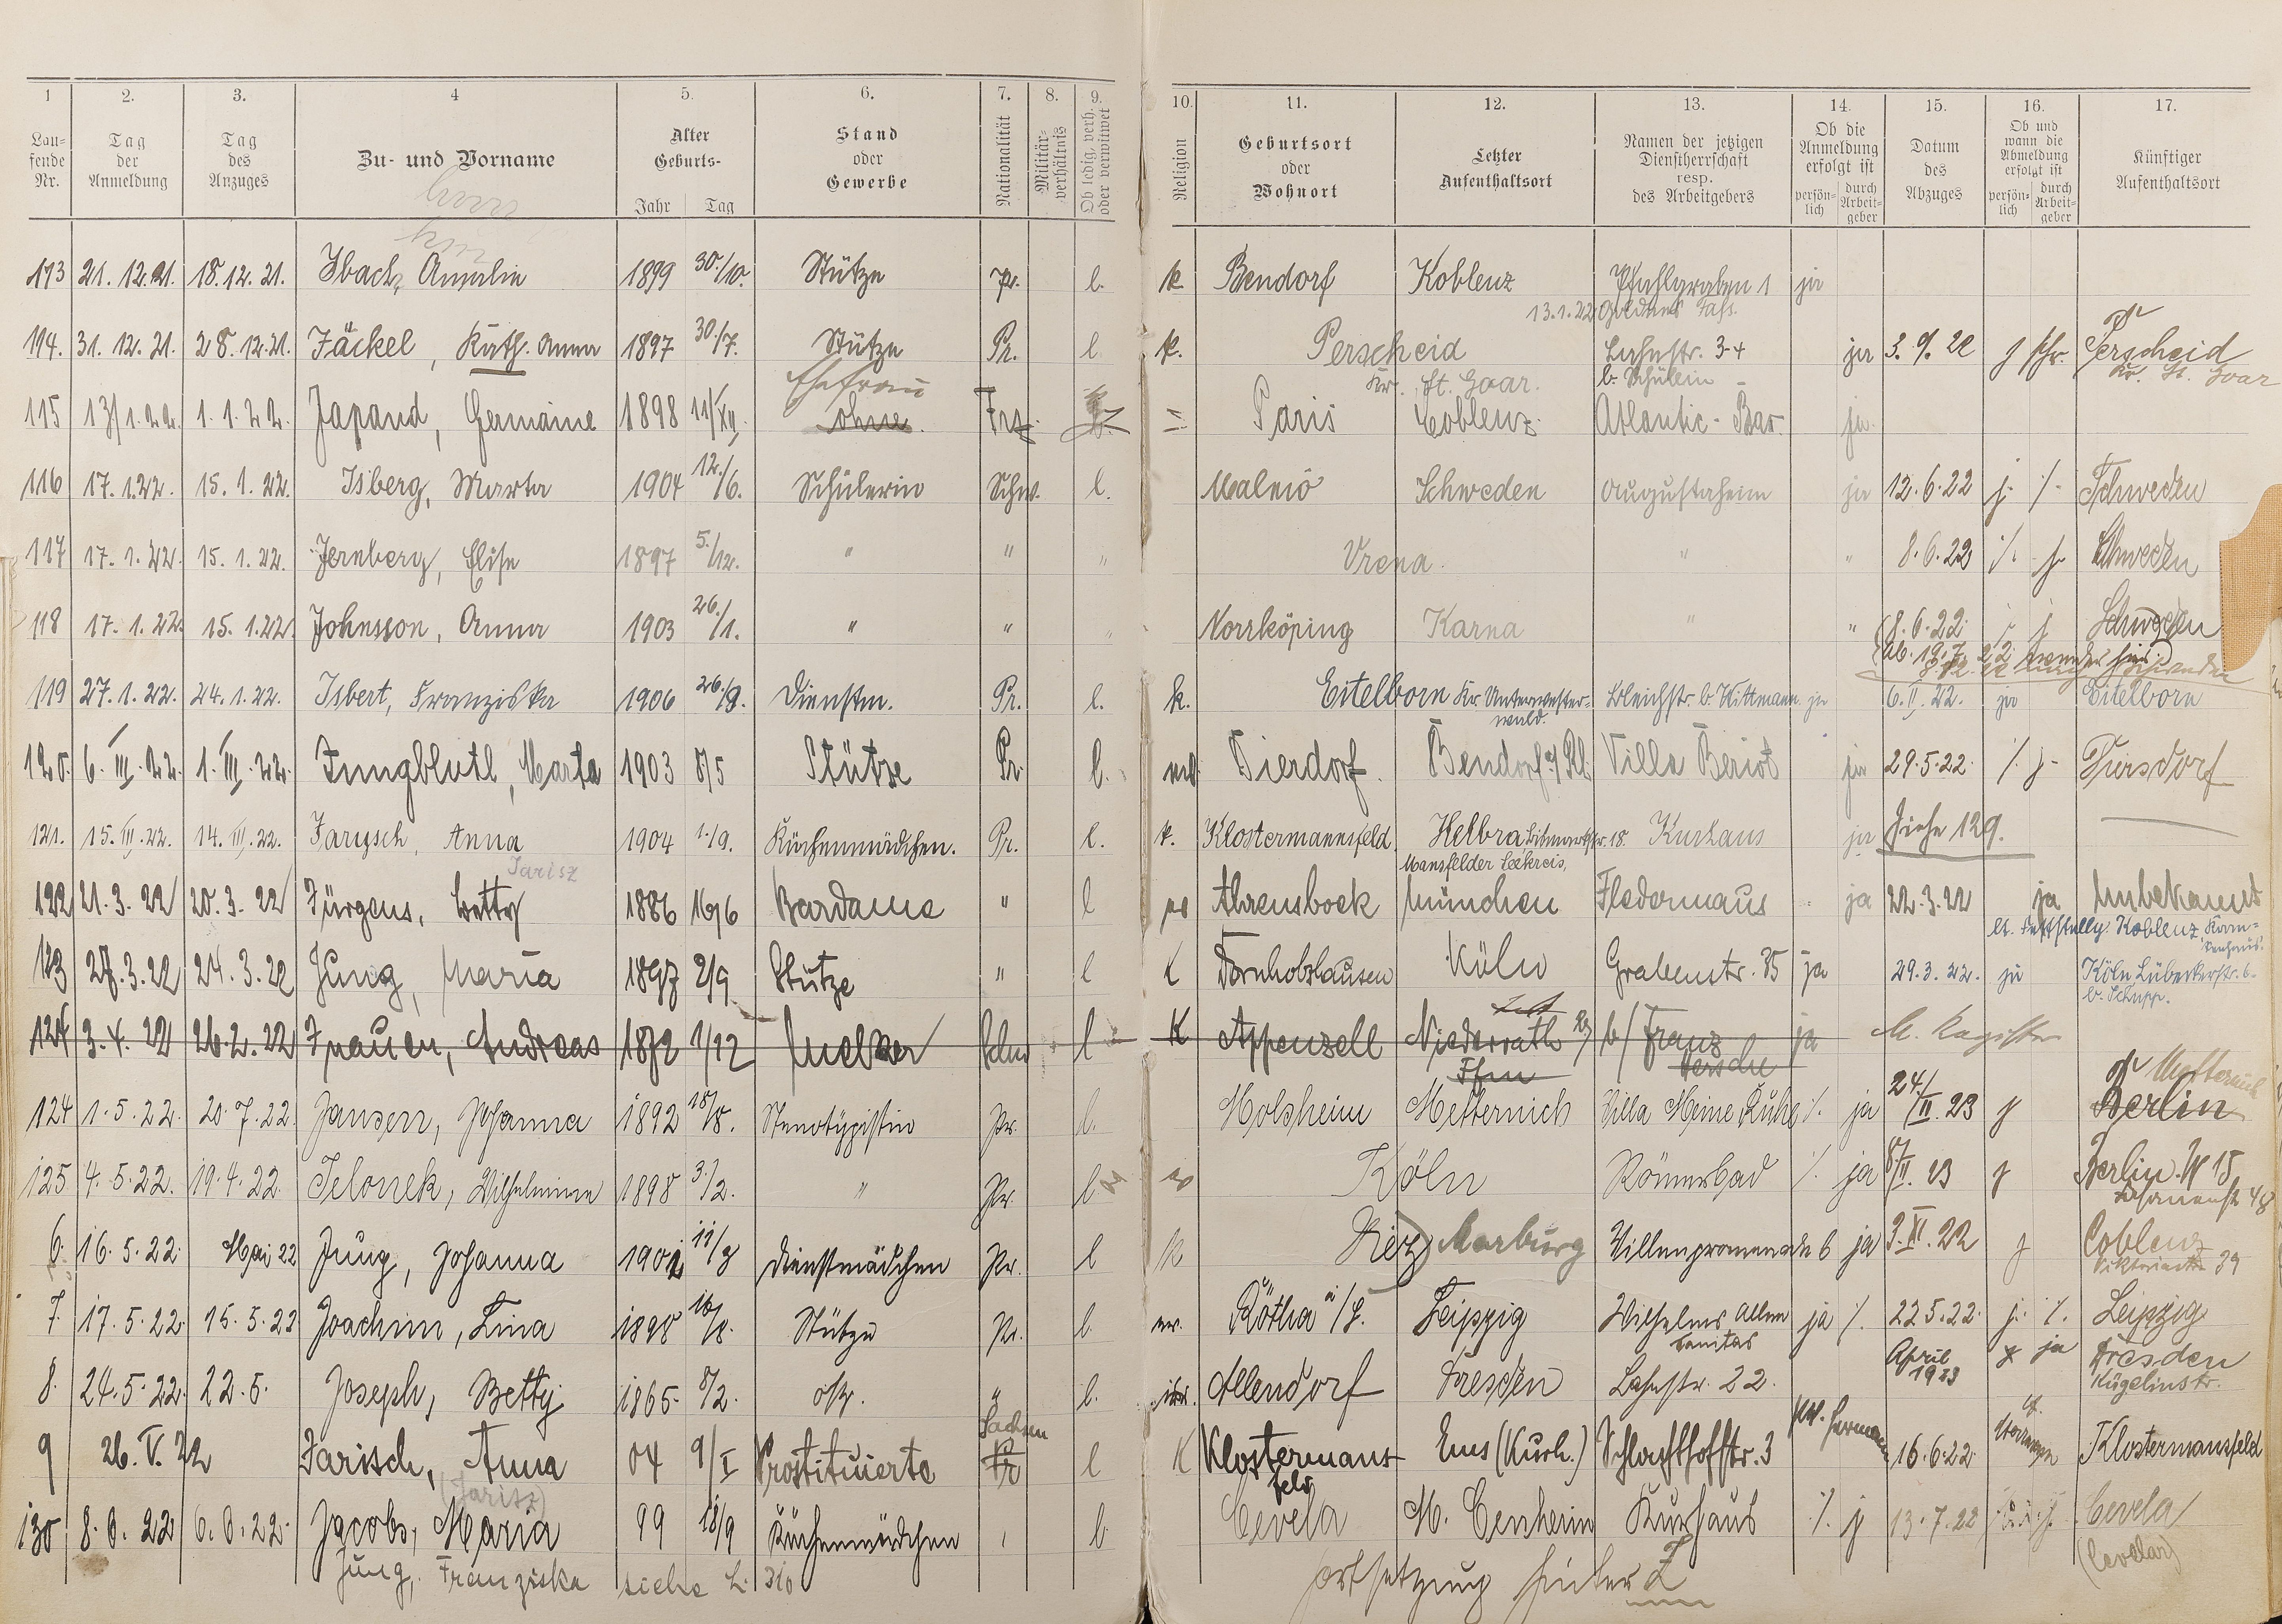 1 2. 3. 4 5. 6. 7. 8. 9. 10. 11. 12. 13. 14. 15. 16. 17.
Lau-fende Nr. Tag der Anmeldung Tag des Anzuges Zu- und Vorname Alter Geburts- Jahr Tag Stand oder Gewerbe Nationalität Militär-verhältnis Ob ledig, verh. oder verwitwet Religion Geburtsort oder Wohnort Letzter Aufenthaltsort Namen der jetzigen Dienstherrschaft resp. des Arbeitgebers Ob die Anmeldung erfolgt ist persön-lich durch Arbeit-geber Datum des Abzuges Ob und wann die Abmeldung erfolgt ist persön-lich durch Arbeit-geber Künftiger Aufenthaltsort
113 21. 12. 21. 18. 12. 21. Ibach, Amalie 1899 30./10. Stütze Pr. l. k. Bendorf Koblenz Pfuhlgraben 1 ja
13.1.22 Goldnes Fass.
114. 31. 12. 21. 28. 12. 21. Jäckel, Käth. Anna 1897 30./7. Stütze Pr. l. k. Perscheid Lahnstr. 3-4 ja 3. 9. 22 j Perscheid
Kr. St. Goar. b. Schülein Kr. St. Goar
Ehefrau
115 13/1.22. 1. 1. 22. Japand, Germaine 1898 11/XII. ohne. Frz. Paris Coblenz Atlantic-Bar. ja.
116 17. 1. 22. 15. 1. 22. Isberg, Marta 1904 12./6. Schülerin Schw. l. Malmö Schweden Augustaheim ja 12. 6. 22 j. /. Schweden
117 17. 1. 22. 15. 1. 22. Jernberg, Elise 1897 5./12. " " " Vrena " " 8. 6. 22 /. j. Schweden
118 17. 1. 22. 15. 1. 22. Johnsson, Anna 1903 26./1. " " " Norrköping Karna " " 8. 6. 22 Schweden
119 27. 1. 22. 24. 1. 22. Isbert, Franziska 1906 26./9. Dienstm. Pr. l. k. Eitelborn Kr. Unterwester- Bleichstr. b. Wittmann ja 6. II. 22. ja Eitelborn
wald.
120. 6. III. 22. 1. III. 22. Jungbluth, Marta 1903 8/5 Stütze Pr. l. Dierdorf Bendorf a/Rh. Villa Beriot ja 29. 5. 22 /. j. Diersdorf
121. 15. III. 22. 14. III. 22. Jarysch, Anna 1904 1./9. Küchenmädchen. Pr. l. k. Klostermannsfeld Helbra Kurhaus ja Siehe 129.
Jarisz Mansfelder Seekreis,
122 21. 3. 22 20. 3. 22 Jürgens, Betty 1886 16/6 Bardame " l Ahrensboek München Fledermaus ja 22. 3. 22 ja Unbekannt
123 27. 3. 22 24. 3. 22 Jung, Maria 1897 2/9 Stütze " l K Dornholzhausen Köln Grabenstr. 35 ja 29. 3. 22. ja Köln, Lübeckerstr. 6.
b. Schupp.
124 3. 4. 22 26. 2. 22 Andreas 1872 1/12 Melker l K Appenzell Niederrath b/ Franz ja M. Register
124 1. 5. 22. 20. 7. 22 Jansen, Johanna 1892 18/8. Stenotypistin Pr. l. Molsheim Metternich Villa Meine Ruhe /. ja 24./II. 23 j Berlin
125 4. 5. 22. 19. 4. 22. Jelonek, Wilhelmine 1898 3./2. " Pr. l Köln Römerbad /. ja 8/II. 23 j Berlin W 15
6. 16. 5. 22. Mai 22 Jung, Johanna 11/8 Dienstmädchen Pr. l k Marburg Villenpromenade 6 ja 3. XI. 22 j Coblenz
Viktoriastr. 39
7. 17. 5. 22. 15. 5. 22 Joachim, Lina 1898 16/8. Stütze Pr. l. ev. Rötha i/S. Leipzig Wilhelms Allee ja /. 22 5. 22. j. /. Leipzig
Sanitas
8. 24. 5. 22. 22. 5. Joseph, Betty 1865. 8/2. oh. " l. isr. Allendorf Dresden Lahnstr. 22. April 1923 ja Dresden
Kügelinstr.
9 26. V. 22 Jarisch, Anna 04 9/I Prostituierte Sachsen Pr l K Klostermans- Ems (Kurh.) Schlachthofstr. 3 16. 6. 22. Klostermansfeld
(Jarisz) feld
130 8. 6. 22 6. 6. 22. Jacobs, Maria 99 18/9 Küchenmädchen l Cevela Kurhaus /. j 13. 7. 22 Cevela
(Cevelar)
Jung, Franziska siehe L. 310 Fortsetzung hinter Z